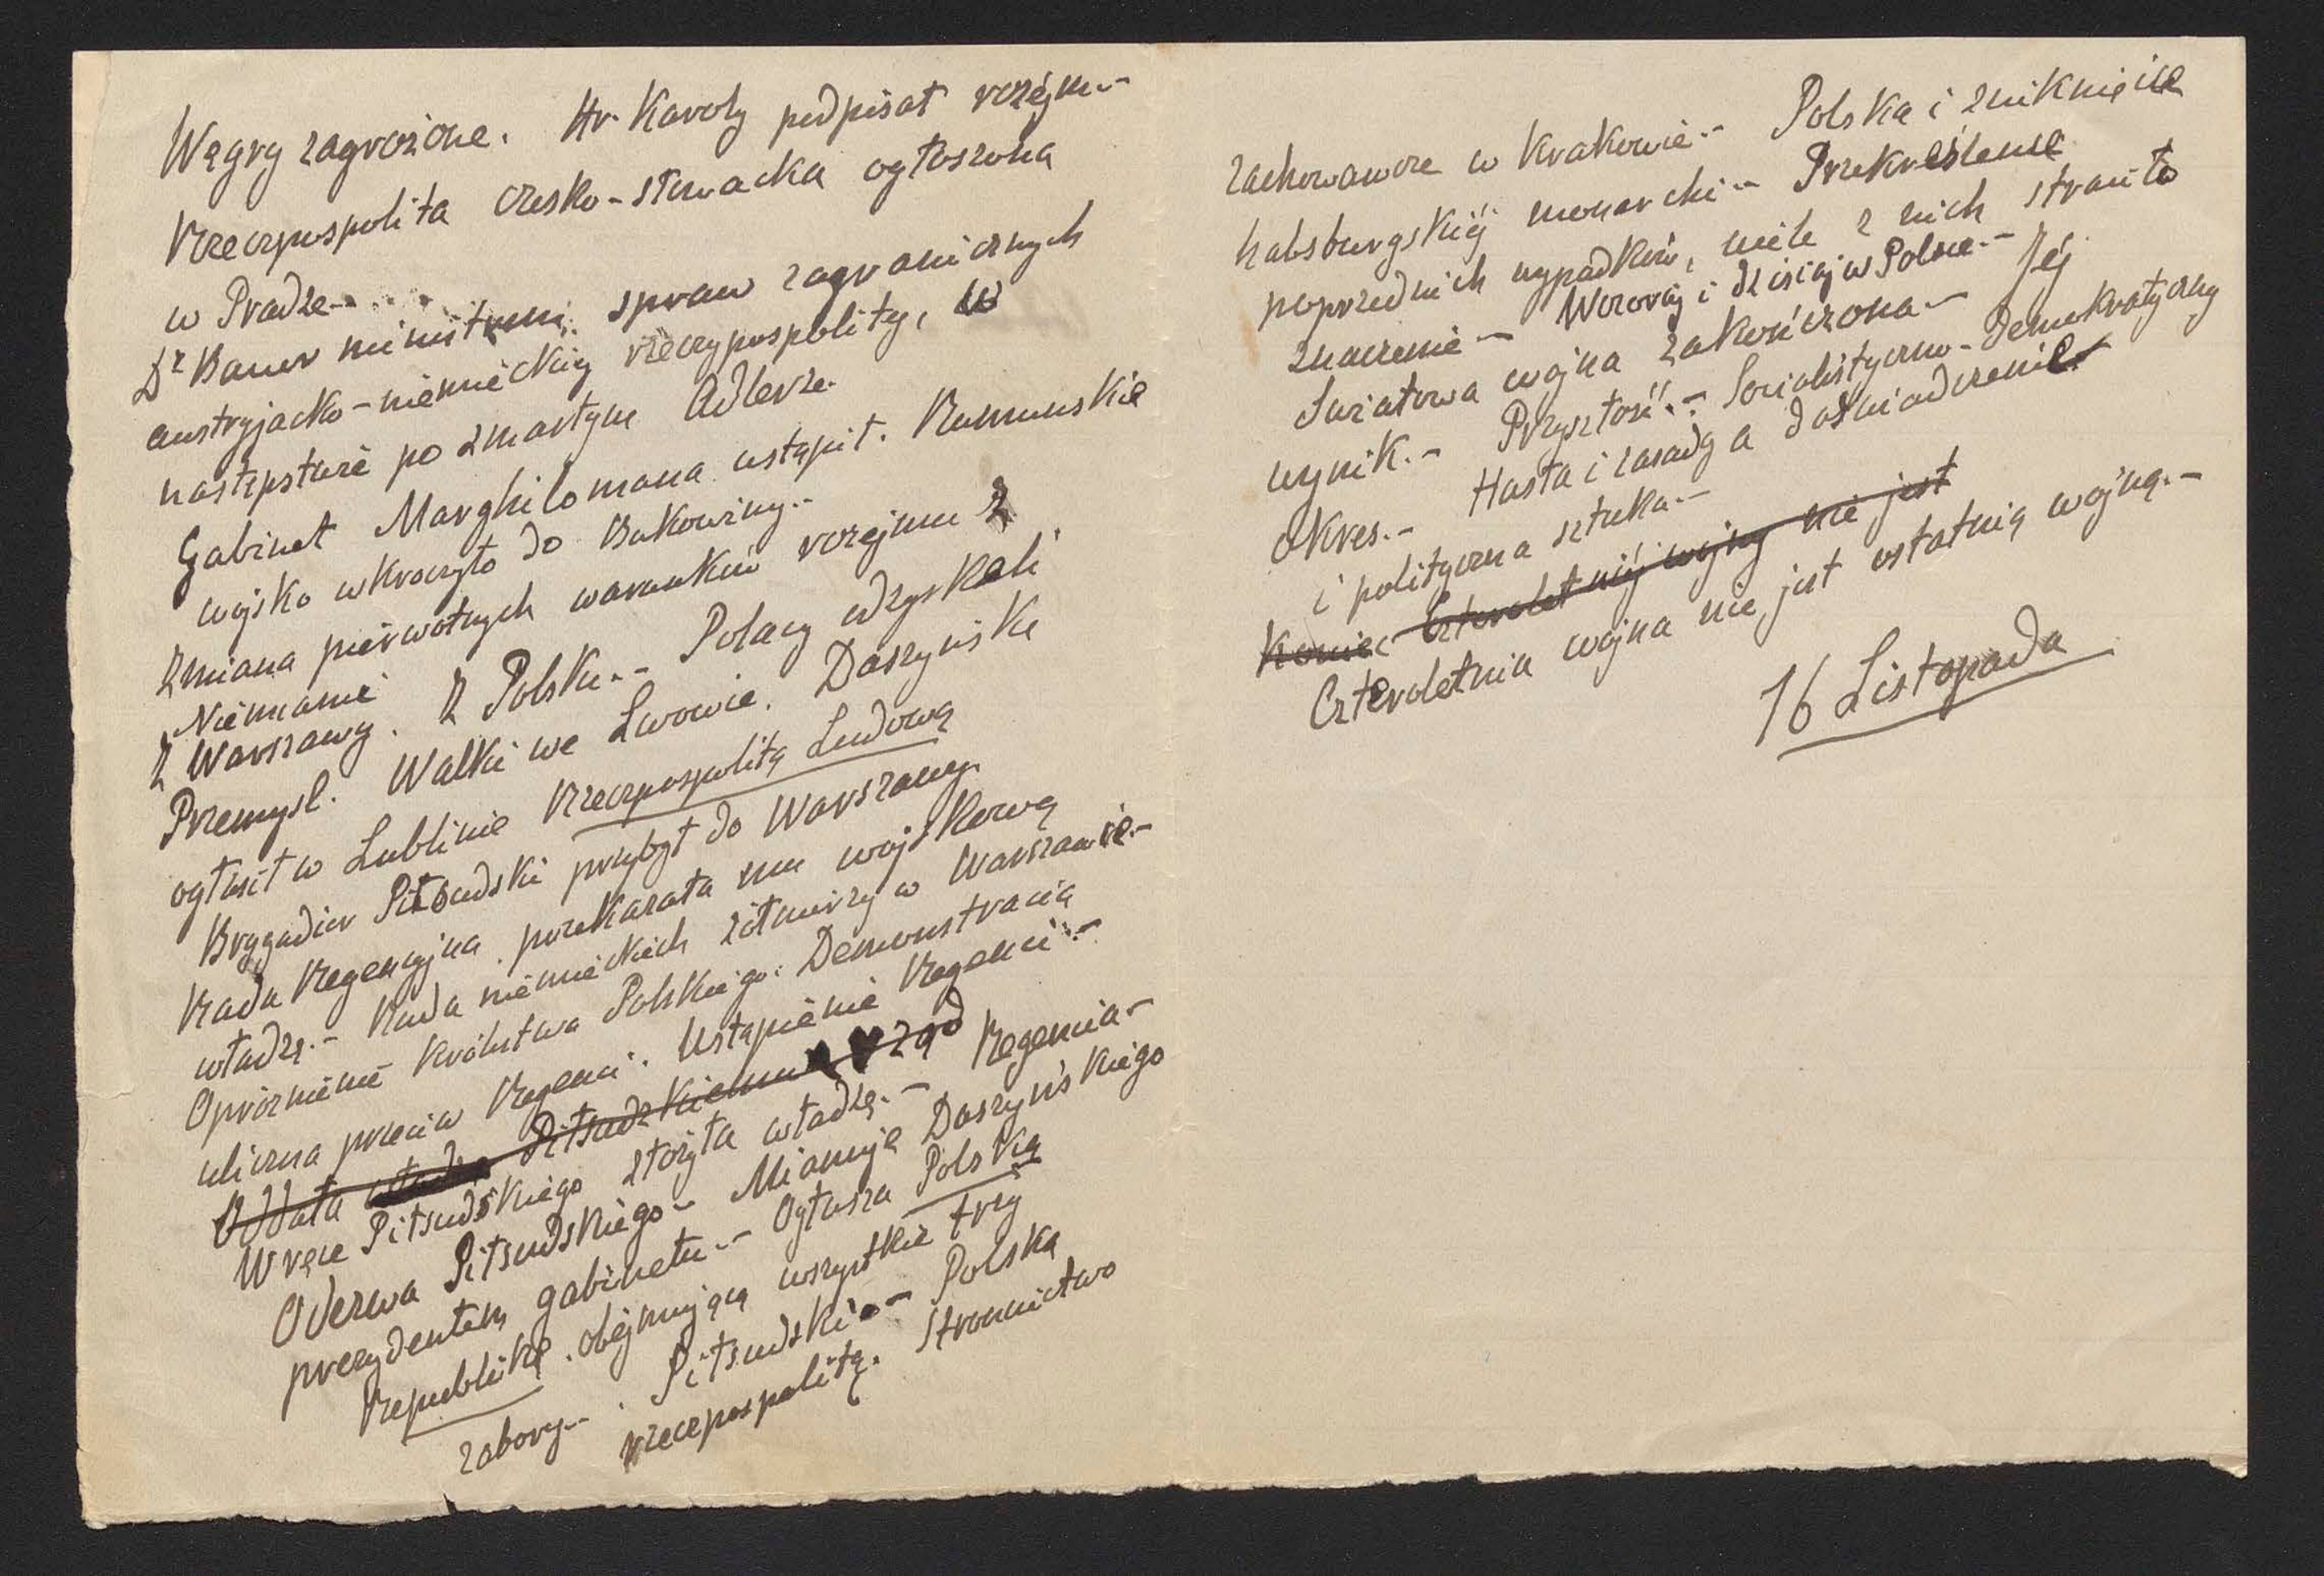 Węgry zagrożone. Hr. Karoly podpisał rozejm.-
Rzeczpospolita czesko-słowacka ogłoszona
w Pradze.-
Dr Bauer ministrem spraw zagranicznych
austryjacko-niemieckiej rzeczypospolity, w
następstwie po zmarłym Adlerze.
Gabinet Marghilomana ustąpił. Rumuńskie
wojsko wkroczyło do Bukowiny.-
Zmiana pierwotnych warunków rozejmu z
Niemcami
Z Warszawy. Z Polski.- Polacy odzyskali
Przemyśl. Walki we Lwowie. Daszyński
ogłosił w Lublinie Rzeczpospolitą Ludową
Brygadier Piłsudski przybył do Warszawy.
Rada Regencyjna przekazała mu wojskową
władzę.- Rada niemieckich żołnierzy w Warszawie.-
Opróżnienie Królestwa Polskiego. Demonstracia
uliczna przeciw Regenci. Ustąpienie Regenci.-
Oddała władzę Piłsudzkiemu rząd
W ręce Piłsudskiego złożyła władzę.- Regencia-
Odezwa Piłsudskiego- Mianuje Daszyńskiego
prezydentem gabinetu.- Ogłasza Polską
Republikę obejmującą wszystkie trzy
zabory.- Piłsudski.- Polską
rzeczpospolitą. Stronnictwo
zachowawcze w Krakowie.- Polska i zniknięcie
habsburgskiéj monarchi.- Przekreślenie
poprzednich wypadków, wiele z nich straciło
znaczenie.- Wczoraj i dzisiaj w Polsce.-
Światowa wojna zakończona.- Jéj
wynik.- Przyszłość.- Socialistyczno-demokratyczny
okres.- Hasła i zasady a doświadczenie
i polityczna sztuka.-
Koniec Czteroletniéj wojny nie jest
Czteroletnia wojna nie jest ostatnią wojną.-
16 Listopada